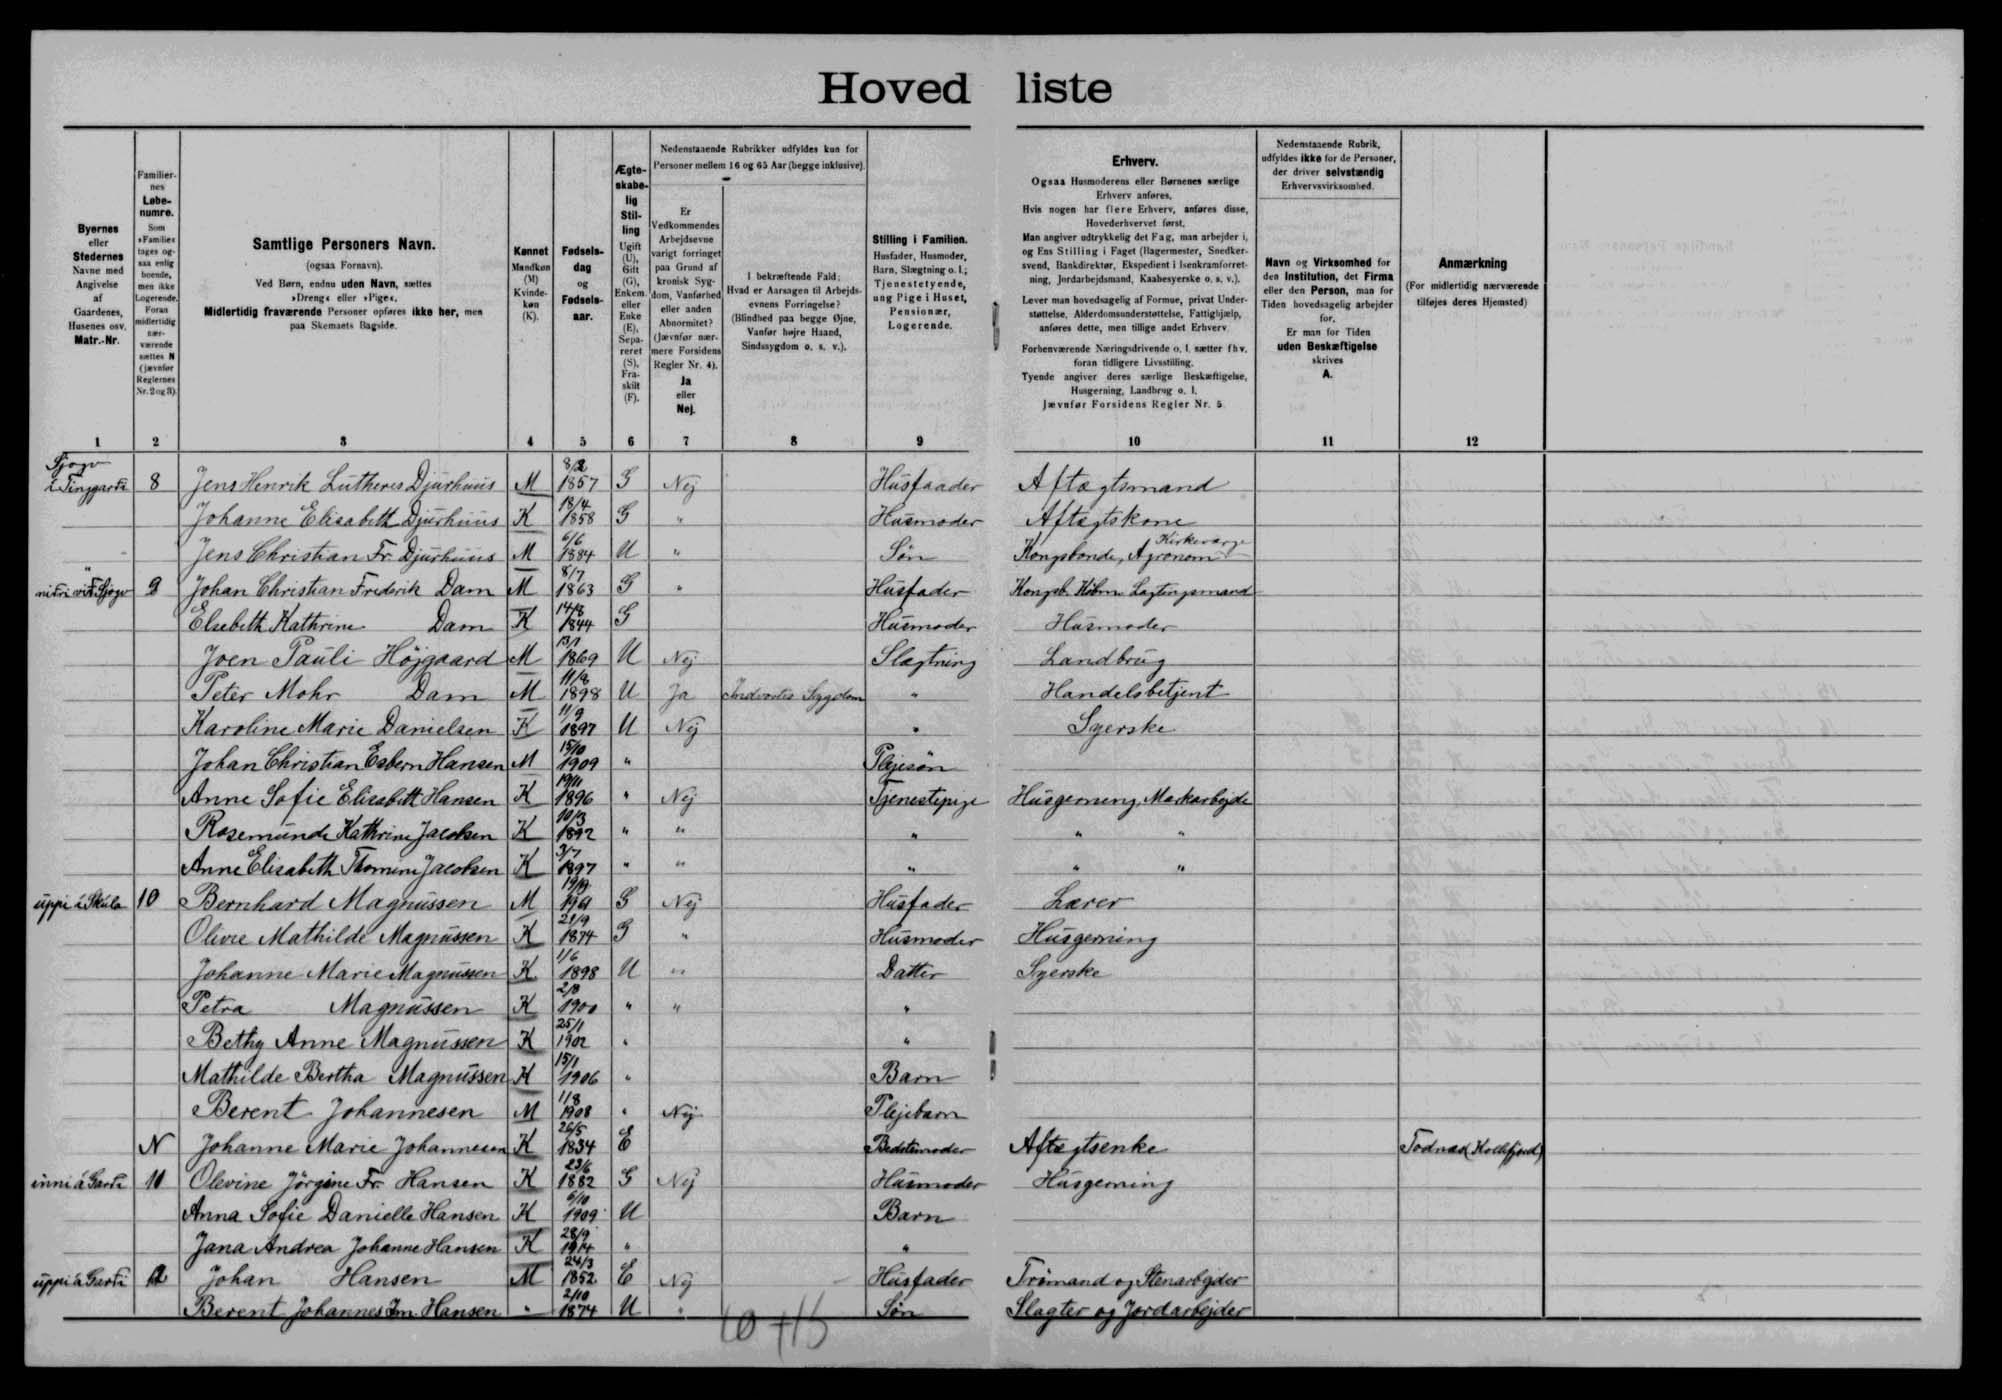 Hovedliste
Byernes eller Stedernes Navne med Angivelse af Gaardenes, Husenes osv. Matr.-Nr.
Familiernes Løbenumre. Som »Familie« tages ogsaa enlig boende, men ikke Logerende. Foran midlertidig nærværende sættes N (jævnfør Reglernes Nr. 2 og 3)
Samtlige Personers Navn. (ogsaa Fornavn). Ved Børn, endnu uden Navn, sættes »Dreng« eller »Pige«. Midlertidig fraværende Personer opføres ikke her, men paa Skemaets Bagside.
Kønnet Mandkøn (M) Kvindekøn (K).
Fødselsdag og Fødselsaar.
Ægteskabelig Stilling Ugift (U), Gift (G), Enkem. eller Enke (E), Separeret (S), Fraskilt (F).
Nedenstaaende Rubrikker udfyldes kun for Personer mellem 16 og 65 Aar (begge inklusive).
Er Vedkommendes Arbejdsevne varigt forringet paa Grund af kronisk Sygdom, Vanførhed eller anden Abnormitet? (Jævnfør nærmere Forsidens Regler Nr. 4). Ja eller Nej.
I bekræftende Fald: Hvad er Aarsagen til Arbejdsevnens Forringelse? (Blindhed paa begge Øjne, Vanfør højre Haand, Sindssygdom o. s. v.).
Stilling i Familien. Husfader, Husmoder, Barn, Slægtning o. l.; Tjenestetyende, ung Pige i Huset, Pensionær, Logerende.
Erhverv.
Ogsaa Husmoderens eller Børnenes særlige Erhverv anføres.
Hvis nogen har flere Erhverv, anføres disse, Hovederhvervet først.
Man angiver udtrykkelig det Fag, man arbejder i, og Ens Stilling i Faget (Bagermester, Snedkersvend, Bankdirektør, Ekspedient i Isenkramforretning, Jordarbejdsmand, Kaabesyerske o. s. v.).
Lever man hovedsagelig af Formue, privat Understøttelse, Alderdomsunderstøttelse, Fattighjælp, anføres dette, men tillige andet Erhverv
Forhenværende Næringsdrivende o. l. sætter fhv. foran tidligere Livsstilling.
Tyende angiver deres særlige Beskæftigelse, Husgerning, Landbrug o. l.
Jævnfør Forsidens Regler Nr. 5.
Nedenstaaende Rubrik, udfyldes ikke for de Personer, der driver selvstændig Erhvervsvirksomhed.
Navn og Virksomhed for den Institution, det Firma eller den Person, man for Tiden hovedsagelig arbejder for.
Er man for Tiden uden Beskæftigelse skrives A.
Anmærkning (For midlertidig nærværende tilføjes deres Hjemsted)
1 2 3 4 5 6 7 8 9 10 11 12
Sjógv
í Tinggarði 8 Jens Henrik Lutheres Djurhuus M 8/2 1857 G Nej Husfaader Aftægtsmand
Johanne Elisabeth Djurhuus K 18/4 1858 G " Husmoder Aftægtskone
Jens Christian Fr. Djurhuus M 6/6 1884 U " Søn Kongsbonde, Agronom Kirkeværge
niðri við Sjógv 9 Johan Christian Frederik Dam M 8/7 1863 G " Husfader Kongsb. Købm. Lagtingsmand
Elsebeth Kathrine Dam K 14/8 1844 G Husmoder Husmoder
Joen Pauli Højgaard M 13/1 1869 U Nej Slægtning Landbrug
Peter Mohr Dam M 11/8 1898 U Ja Indvortes Sygdom " Handelsbetjent
Karoline Marie Danielsen K 11/9 1897 U Nej " Syerske
Johan Christian Esbern Hansen M 15/10 1909 " Plejesøn
Anne Sofie Elisabeth Hansen K 19/11 1896 " Nej Tjenestepige Husgerning, Markarbejde
Rosemunde Kathrine Jacobsen K 10/3 1892 " " " " "
Anne Elisabeth Thomine Jacobsen K 3/7 1897 " " " " "
uppi á Skúla 10 Bernhard Magnussen M 19/9 G Nej Husfader Lærer
Olivie Mathilde Magnussen K 21/9 1874 G " Husmoder Husgerning
Johanne Marie Magnussen K 1/6 1898 U " Datter Syerske
Petra Magnussen K 2/8 1900 " " "
Bethy Anne Magnussen K 25/1 1902 " "
Mathilde Bertha Magnussen K 15/1 1906 " Barn
Berent Johannesen M 11/8 1908 " Nej Plejebarn
N Johanne Marie Johannesen K 26/5 1834 E Bedstemoder Aftægtsenke Todnæs (Kollefjord)
inni á Garði 11 Olevine Jörgine Fr. Hansen K 23/6 1882 G Nej Husmoder Husgerning
Anna Sofie Danielle Hansen K 6/10 1909 U Barn
Jana Andrea Johanne Hansen K 28/9 1914 " "
uppi á Garði 12 Johan Hansen M 24/3 1852 E Nej Husfader Trømand og Stenarbejder
Berent Johannes Im. Hansen " 2/10 1874 U " Søn Slagter og Jordarbejder
10 + 15